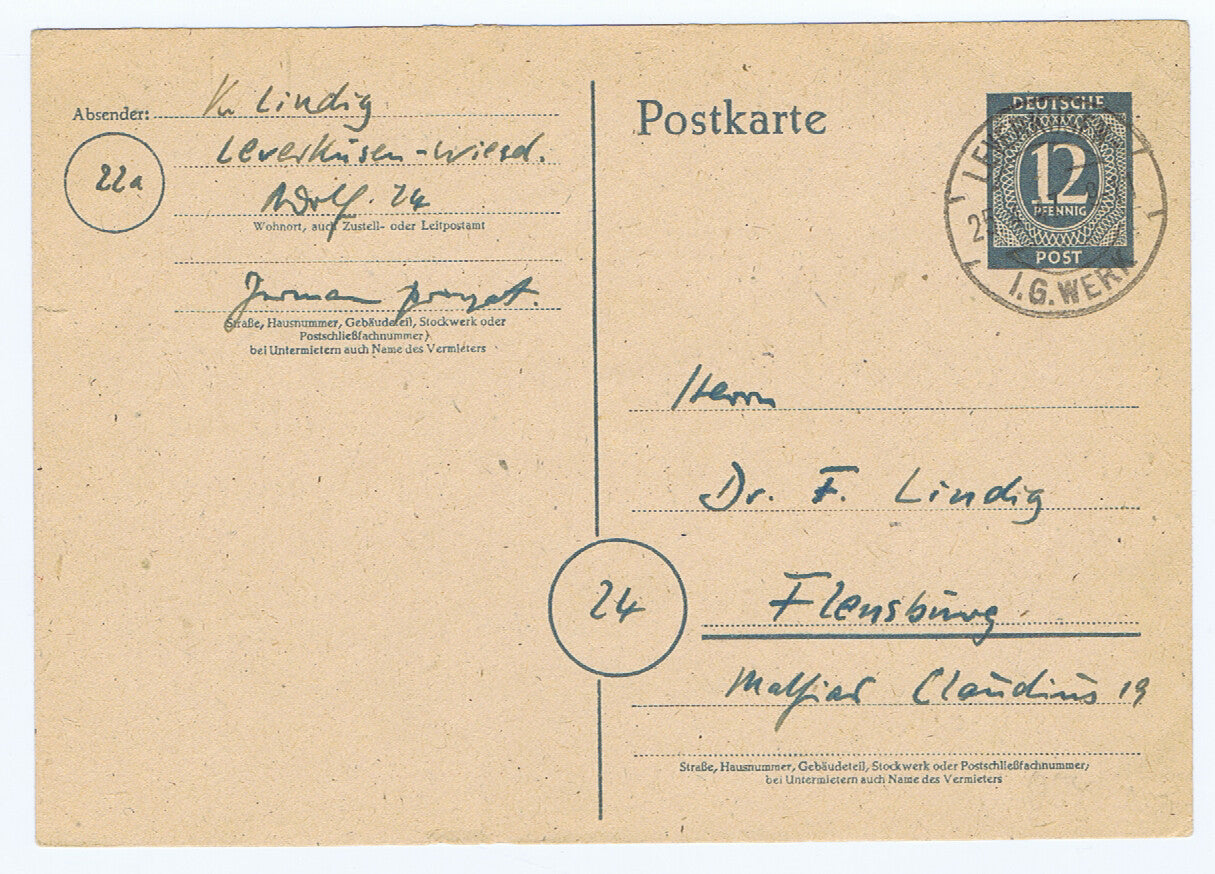 Absender: Lindig
22a
Leverkusen-Wiesd.
Wohnort, auch Zustell- oder Leitpostamt
Straße, Hausnummer, Gebäudeteil, Stockwerk oder
Postschließfachnummer)
bei Untermietern auch Name des Vermieters
Postkarte
DEUTSCHE
12
PFENNIG
POST
I.G.WERK
Herrn
Dr. F. Lindig
24
Flensburg
Mathias Claudius 19
Straße, Hausnummer, Gebäudeteil, Stockwerk oder Postschließfachnummer;
bei Untermietern auch Name des Vermieters